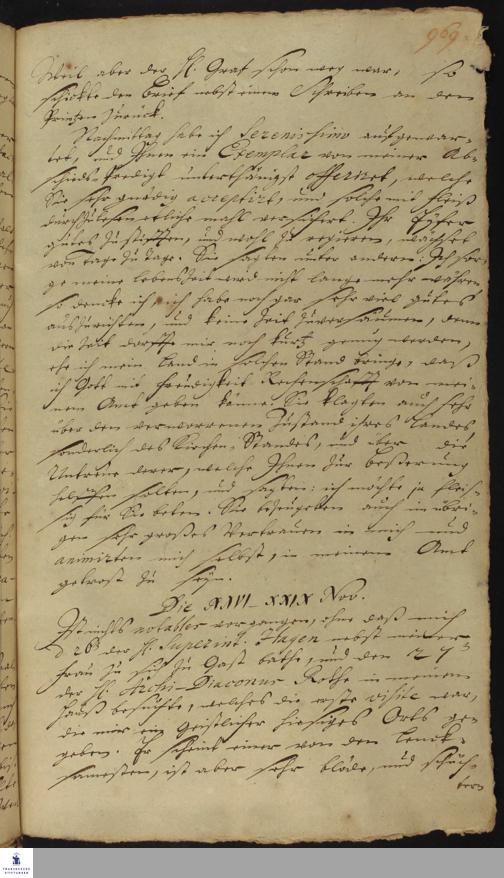 969.
Weil aber der H. Graf schon weg war, so
schickte den Brief nebst einem Schreiben an den
Printzen zurück.
Nachmittag habe ich Serenissimo aufgewar-
tet, und Ihnen ein Exemplar von meiner Ab-
schieds-Predigt unterthänigst offeriret, welche
Sie sehr gnädig acceptirt, und solche mit Fleiß
durchzulesen etliche mahl versichert. Ihr Eyfer
gutes zu stifften, und wohl zu regieren, wächset
von Tage zu Tage. Sie sagten unter anderm: Ich sor-
ge meine Lebenszeit wird nicht lange mehr währen,
so dencke ich, ich habe noch gar sehr viel gutes
auszurichten, und keine Zeit zu versäumen, denn
die Zeit dörffte mir noch kurtz genug werden,
ehe ich mein Land in solchen Stand bringe, daß
ich Gott mit Freudigkeit Rechenschafft von mei-
nem Amt geben könne. Sie klagten auch sehr
über den verworrenen Zustand ihres Landes
sonderlich des Kirchen-Standes, und über die
Untreue derer, welche Ihnen zur Beßerung
helffen solten, und sagten: ich möchte ja fleis-
sig für Sie beten. Sie bezeugeten auch im übri-
gen sehr großes Vertrauen in mich und
animirten mich selbst, in meinem Amt
getrost zu seyn.
Die XXVI–XXIX Nov.
Ist nichts notables vergangen, ohne daß mich
d 28 der H. Superint: Hagen nebst meiner
Frau zu sich zu Gast bäthe, und den 29
der H. Archi-Diaconus Rothe in meinem
Hauß besuchte, welches die erste visite war,
die mir ein Geistlicher hiesiges Orts ge-
geben. Er scheint einer von den lenck-
samesten, ist aber sehr blöde, und schüch-
tern
FRANCKESCHE
STIFTUNGEN